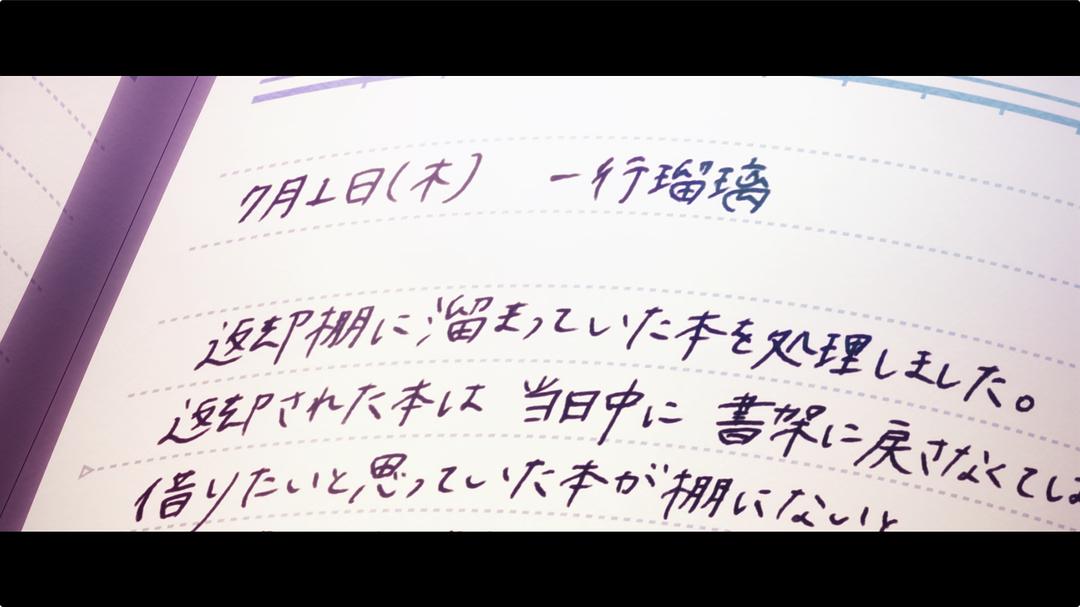 7月1日(木) 一行瑠璃
返却棚に溜まっていた本を処理しました。
返却された本は 当日中に 書架に戻さなくては
借りたいと思っていた本が棚にないと